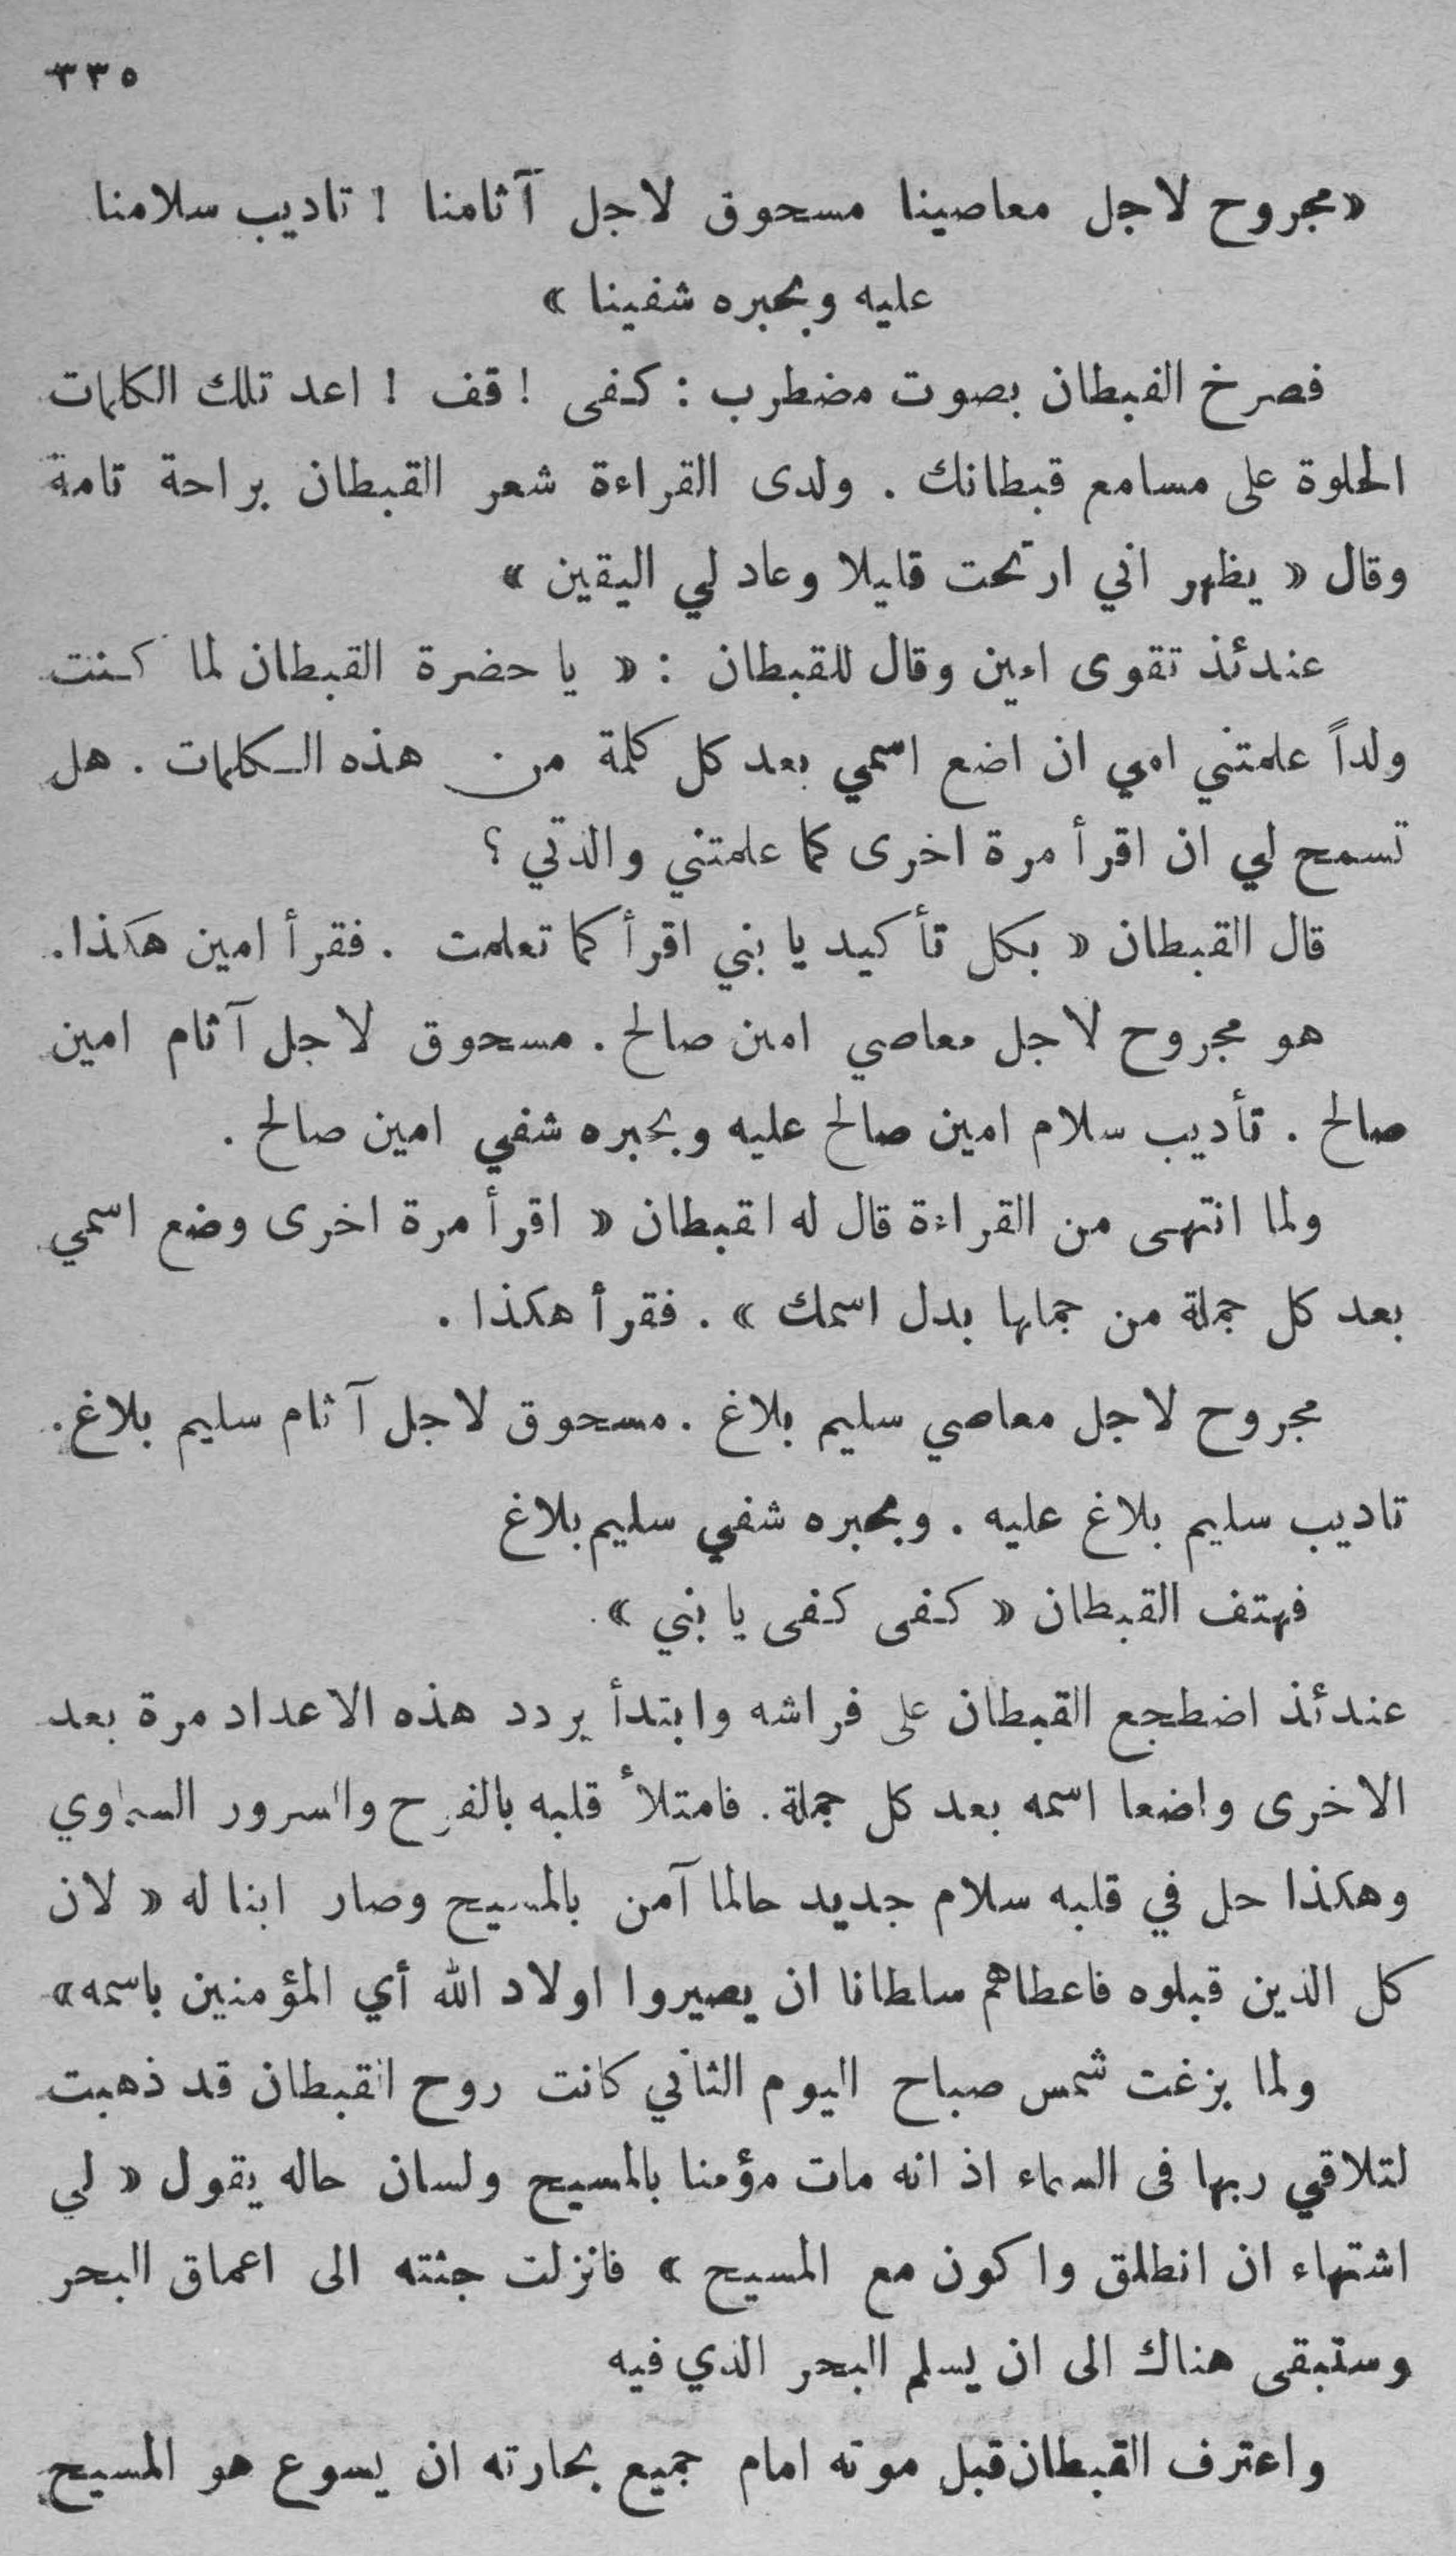 ٣٣٥
«مجروح لاجل معاصينا مسحوق لاجل آثامنا ! تاديب سلامنا
عليه وبحبره شفينا »
فصرخ القبطان بصوت مضطرب : كفى ! قف ! اعد تلك الكلمات
الحلوة على مسامع قبطانك . ولدى القراءة شعر القبطان براحة تامة
وقال « يظهر اني ارتحت قليلا وعاد لي اليقين »
عندئذ تقوى امين وقال للقبطان : « يا حضرة القبطان لما كنت
ولداً علمتني امي ان اضع اسمي بعد كل كلمة من هذه الكلمات . هل
تسمح لي ان اقرأ مرة اخرى كما علمتني والدتي ؟
قال القبطان « بكل تأكيد يا بني اقرأ كما تعلمت . فقرأ امين هكذا.
هو مجروح لاجل معاصي امين صالح . مسحوق لاجل آثام امين
صالح . تأديب سلام امين صالح عليه وبحبره شفي امين صالح .
ولما انتهى من القراءة قال له القبطان « اقرأ مرة اخرى وضع اسمي
بعد كل جملة من جملها بدل اسمك » . فقرأ هكذا .
مجروح لاجل معاصي سليم بلاغ . مسحوق لاجل آثام سليم بلاغ.
تاديب سليم بلاغ عليه . وبحبره شفي سليم بلاغ
فهتف القبطان « كفى كفى يا بني ».
عندئذ اضطجع القبطان على فراشه وابتدأ يردد هذه الاعداد مرة بعد
الاخرى واضعا اسمه بعد كل جملة. فامتلأ قلبه بالفرح والسرور السماوي
وهكذا حل في قلبه سلام جديد حالما آمن بالمسيح وصار ابنا له « لان
كل الذين قبلوه فاعطاهم سلطانا ان يصيروا اولاد الله أي المؤمنين باسمه»
ولما بزغت شمس صباح اليوم الثاني كانت روح القبطان قد ذهبت
لتلاقي ربها فى السماء اذ انه مات مؤمنا بالمسيح ولسان حاله يقول « لي
اشتهاء ان انطلق واكون مع المسيح » فانزلت جثته الى اعماق البحر
وستبقى هناك الى ان يسلم البحر الذي فيه
واعترف القبطان قبل موته امام جميع بحارته ان يسوع هو المسيح